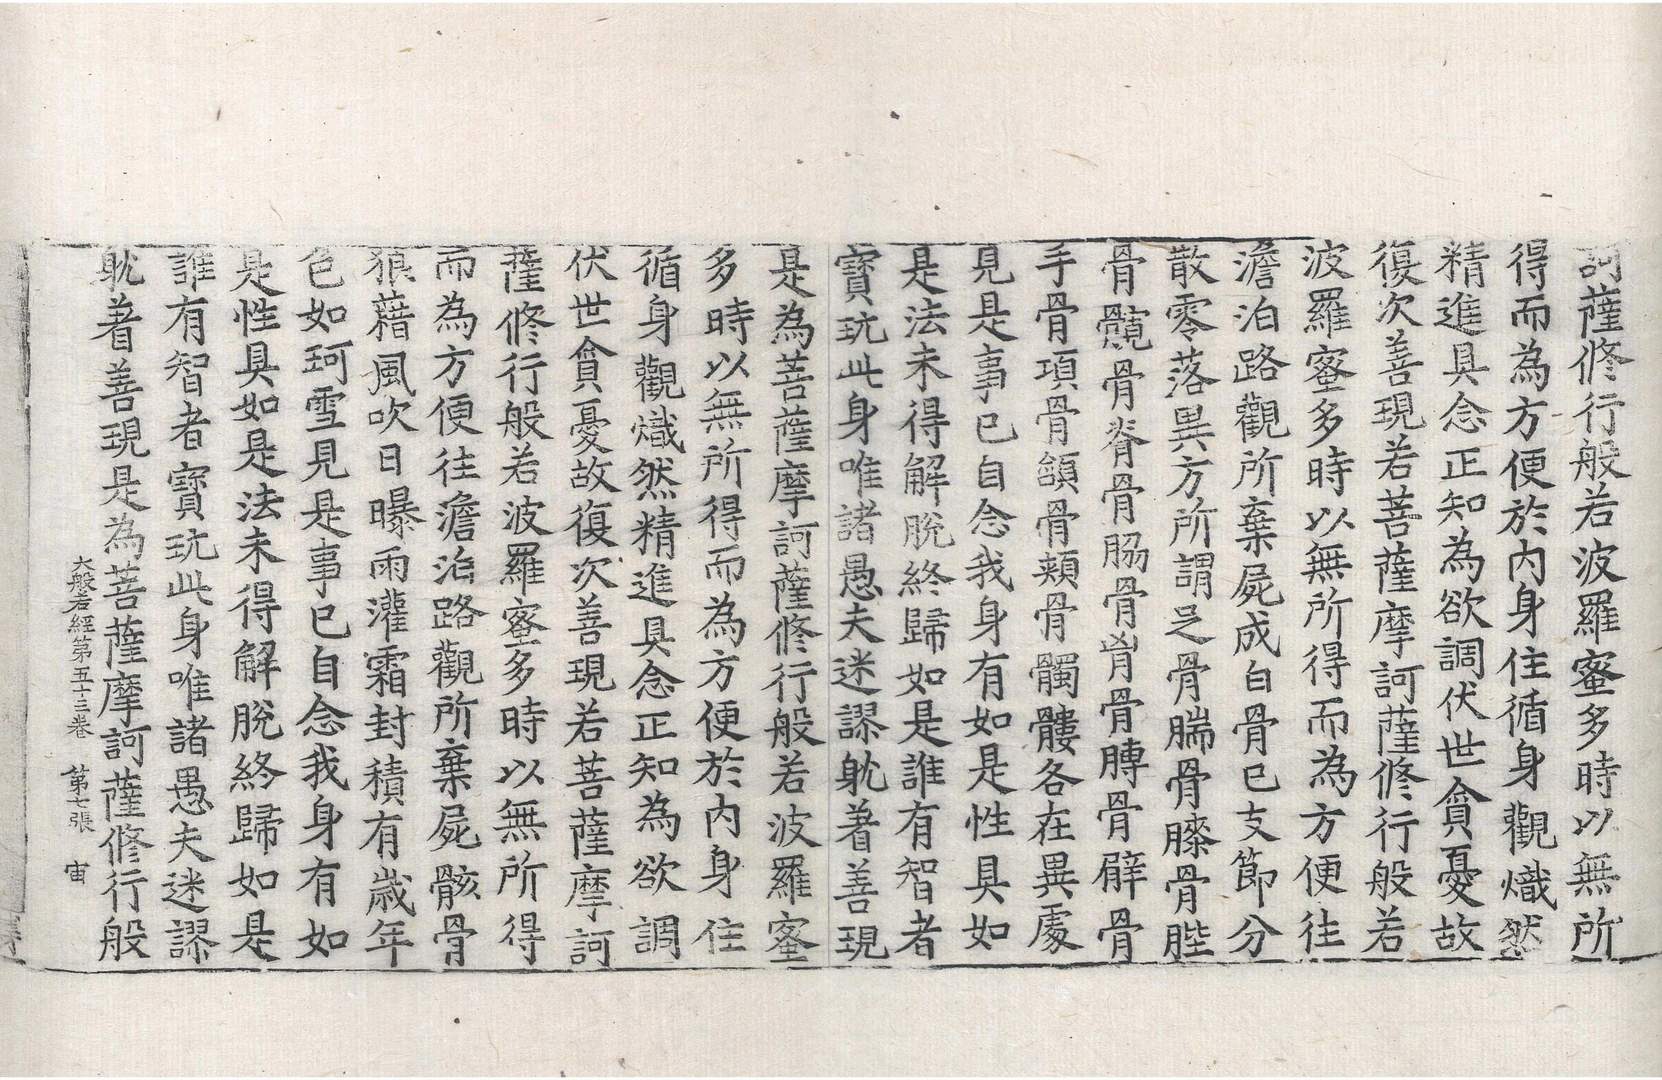 訶薩修行般若波羅蜜多時以無所
得而為方便於內身住循身觀熾然
精進具念正知為欲調伏世貪憂故
復次善現若菩薩摩訶薩修行般若
波羅蜜多時以無所得而為方便往
澹泊路觀所棄屍成白骨已支節分
散零落異方所謂足骨腨骨膝骨䏶
骨髖骨脊骨脇骨胷骨膊骨臂骨
手骨項骨頷骨頰骨髑髏各在異處
見是事已自念我身有如是性具如
是法未得解脫終歸如是誰有智者
寶玩此身唯諸愚夫迷謬躭著善現
是為菩薩摩訶薩修行般若波羅蜜
多時以無所得而為方便於內身住
循身觀熾然精進具念正知為欲調
伏世貪憂故復次善現若菩薩摩訶
薩修行般若波羅蜜多時以無所得
而為方便往澹泊路觀所棄屍骸骨
狼藉風吹日曝雨灌霜封積有歲年
色如珂雪見是事已自念我身有如
是性具如是法未得解脫終歸如是
誰有智者寶玩此身唯諸愚夫迷謬
躭著善現是為菩薩摩訶薩修行般
大般若經第五十三卷 第七張 宙